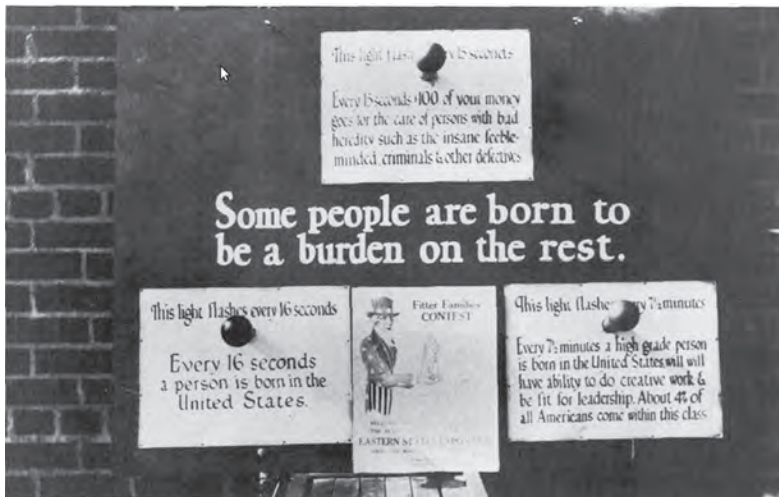 This light flash   15 seconds
Every 15 seconds $100 of your money
goes for the care of persons with bad
heredity such as the insane feeble-
minded, criminals & other defectives
Some people are born to
be a burden on the rest.
This light flashes every 16 seconds
Every 16 seconds
a person is born in the
United States.
Fitter Families
CONTEST
EASTERN STATES EXPOSITION
This light flashes every 7½ minutes
Every 7½ minutes a high grade person
is born in the United States, will will
have ability to do creative work &
be fit for leadership. About 4% of
all Americans come within this class